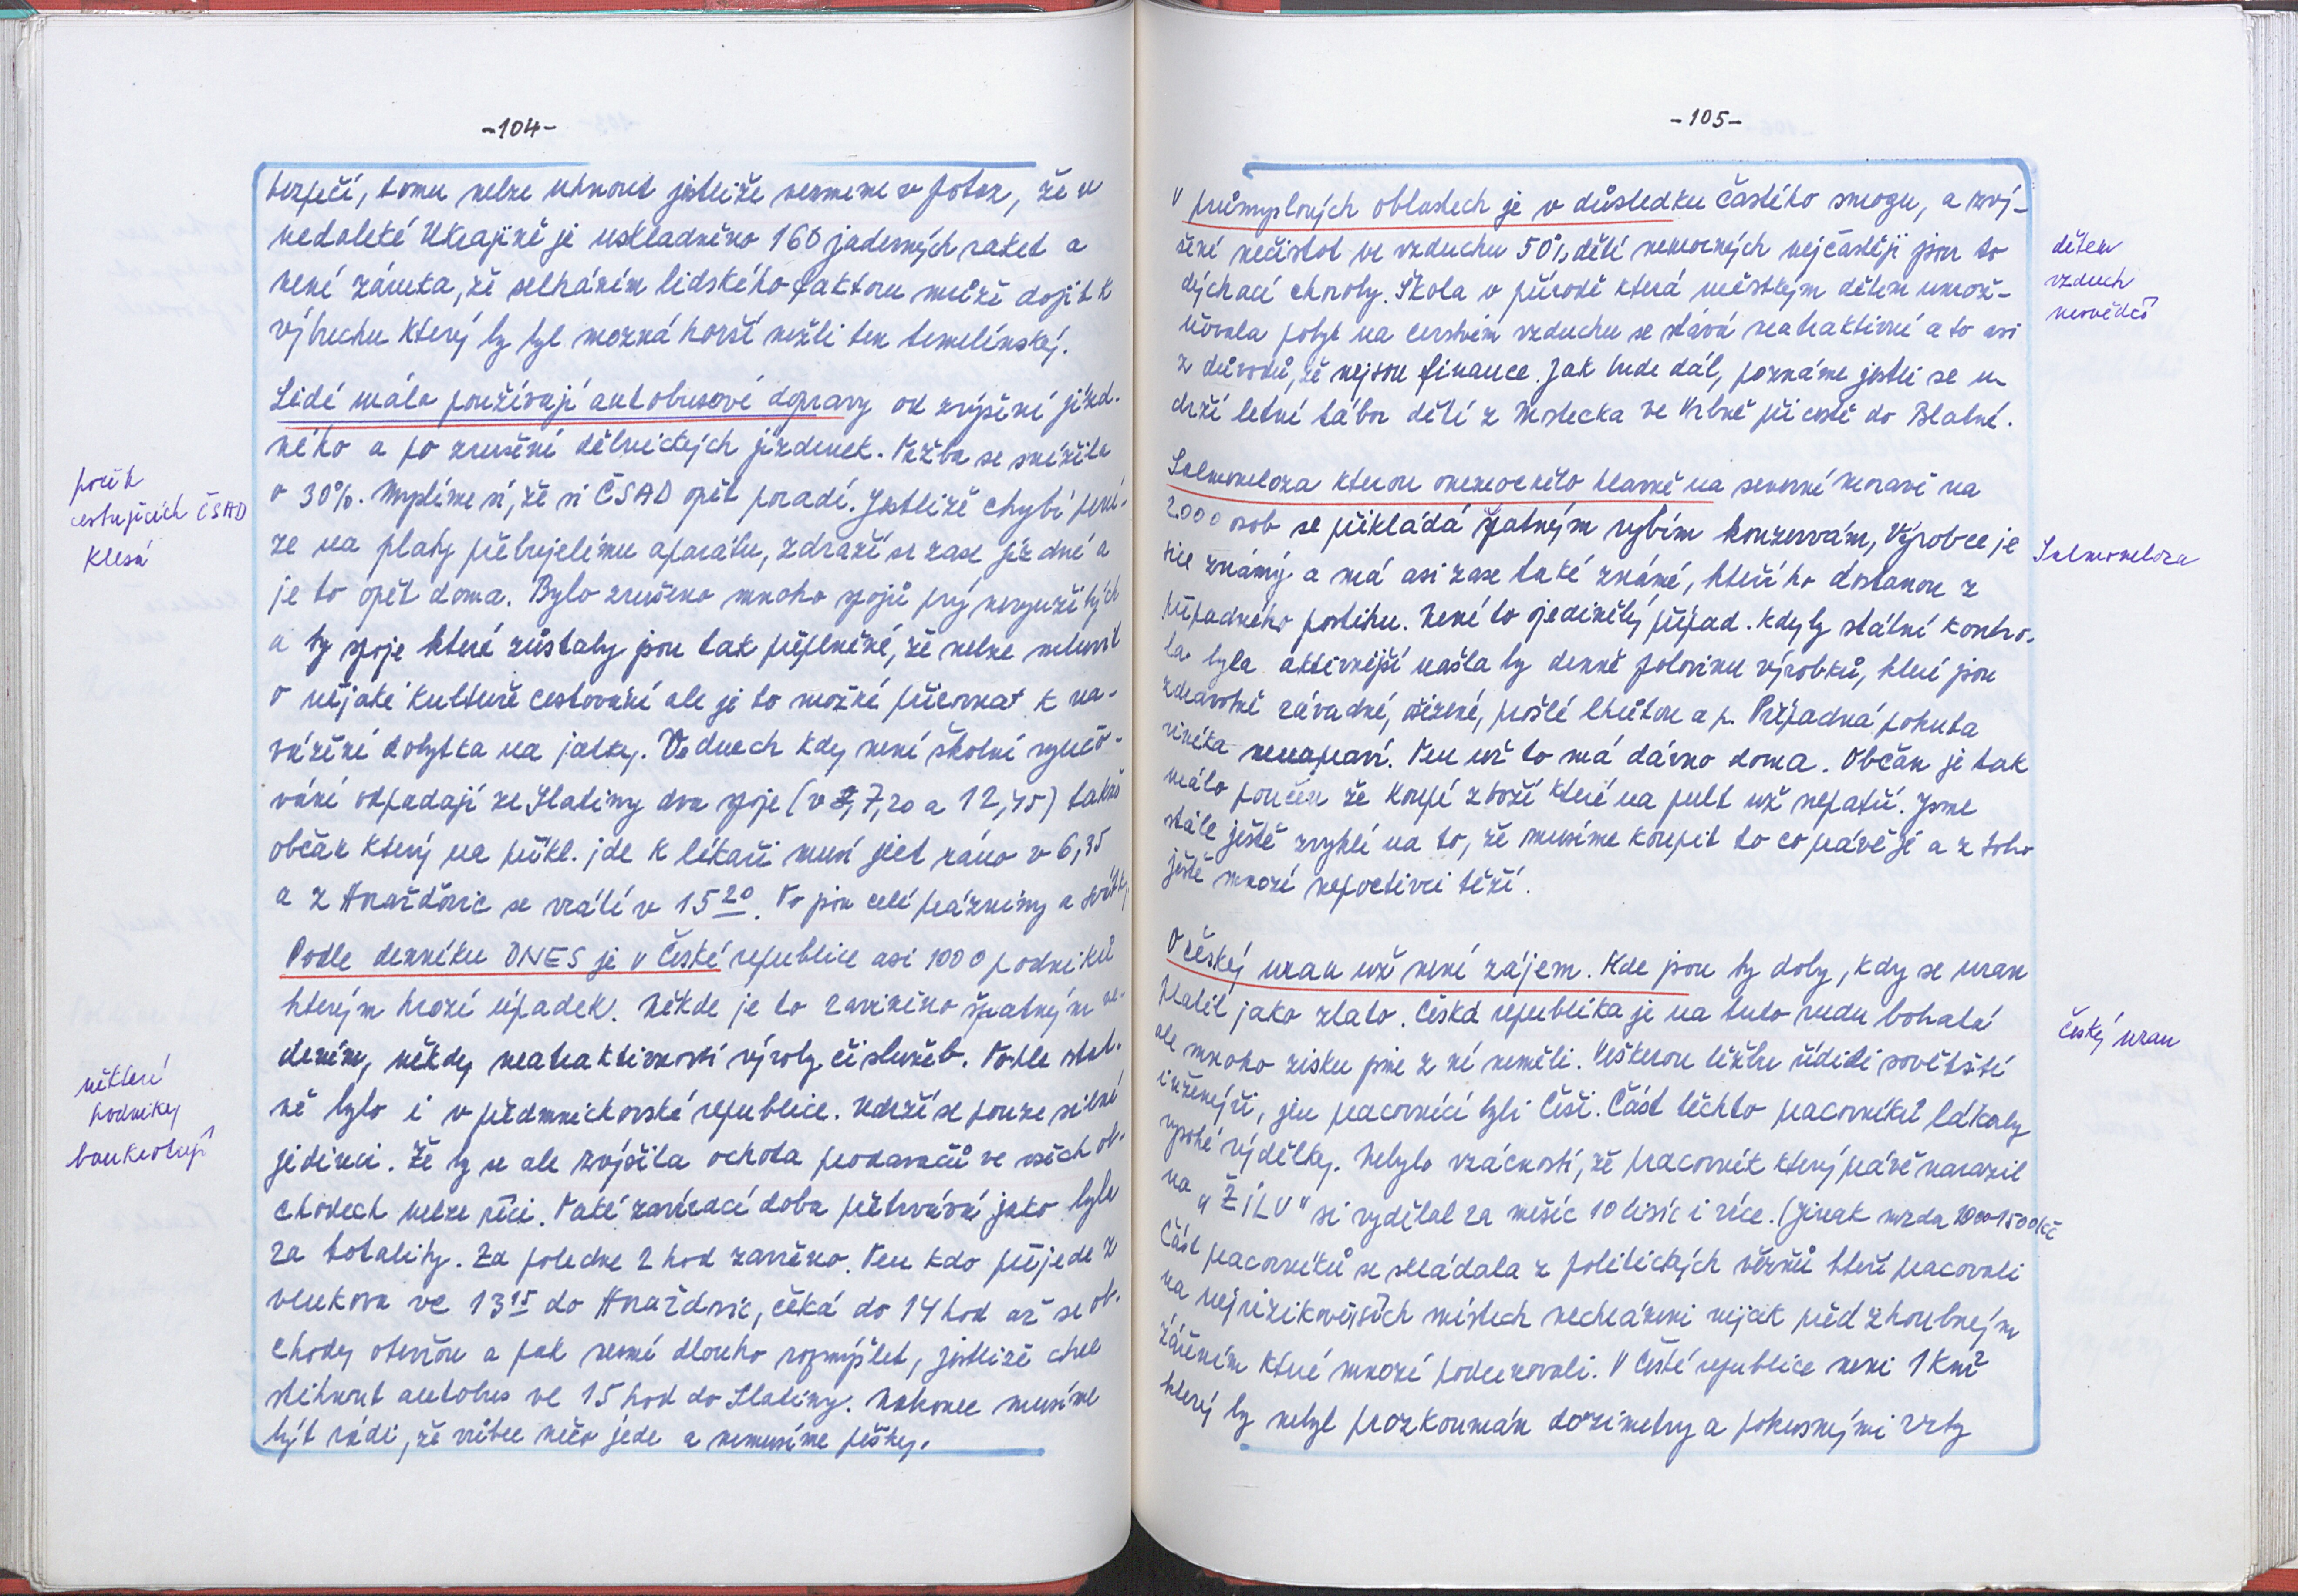 -104-
bezpečí, tomu nelze uhnout jestliže vezmeme v potaz, že v
nedaleké Ukrajině je uskladněno 160 jaderných raket a
není záruka, že selháním lidského faktoru může dojít k
výbuchu který by byl možná horší nežli ten temelínský.
Lidé málo používají autobusové dopravy od zvýšení jízd-
ného a po zrušení dělnických jízdenek. Tržba se snížila
o 30%. Myslíme si, že si ČSAD opět poradí. Jestliže chybí pení-
ze na platy přebujelému aparátu, zdraží se zase jízdné a
je to opět doma. Bylo zrušeno mnoho spojů prý nevyužitých
a ty spoje které zůstaly jsou tak přeplněné, že nelze mluvit
o nějaké kultuře cestování ale je to možné přirovnat k na-
vážení dobytka na jatky. Ve dnech kdy není školní vyučo-
vání odpadají ze Slatiny dva spoje (v 7,20 a 12,45) takže
občan který na příkl. jde k lékaři musí jet ráno v 6,35
a z Horažďovic se vrátí v 15 20. To jsou celé prázdniny a svátky
Podle denníku DNES je v České republice asi 1000 podniků
kterým hrozí úpadek. Někde je to zaviněno špatným ve-
dením, někdy neatraktivností výroby či služeb. Tohle ostat-
ně bylo i v předmnichovské republice. Udrží se pouze silní
jedinci. Že by se ale zvýšila ochota prodavačů ve všech ob-
chodech nelze říci. Také zavírací doba přetrvává jako byla
za totality. Za poledne 2 hod zavřeno. Ten kdo přijede z
venkova ve 13 15 do Horažďovic, čeká do 14 hod až se ob-
chody otevřou a pak nesmí dlouho rozmýšlet, jestliže chce
stihnout autobus ve 15 hod do Slatiny. Nakonec musíme
být rádi, že vůbec něco jede a nemusíme pěšky.
počet
cestujících ČSAD
klesá
někteří
podniky
bankrotují
-105-
V průmyslových oblastech je v důsledku častého smogu, a zvý-
šené nečistot ve vzduchu 50% dětí nemocných nejčastěji jsou to
dýchací choroby. Škola v přírodě která městským dětem umož-
ňovala pobyt na čerstvém vzduchu se stává neatraktivní a to asi
z důvodů, že nejsou finance. Jak bude dál, poznáme jestli se u
drží letní tábor dětí z Mostecka ve Vrbně při cestě do Blatné.
Salmoneloza kterou onemocnělo hlavně na severní Moravě na
2000 osob se přikládá špatným rybím konzervám, Výrobce je
sice známý a má asi zase také známé, kteří ho dostanou z
případného postihu. Není to ojedinělý případ. Kdyby státní kontro-
la byla aktivnější našla by denně polovinu výrobků, které jsou
zdravotně závadné, ošizené, prošlé lhůtou a p. Případná pokuta
viníka nenapraví. Ten už to má dávno doma. Občan je tak
málo poučen že koupí zboží které na pult už nepatří. Jsme
stále ještě zvyklí na to, že musíme koupit to co právě je a z toho
ještě mnozí nepoctivci těží.
O českej uran už není zájem. Kde jsou ty doby, kdy se uran
platil jako zlato. Česká republika je na tuto rudu bohatá
ale mnoho zisku jsme z ní neměli. Veškerou těžbu řídili sovětští
inženýři, jen pracovníci byli Češi. Část těchto pracovníků lákaly
vysoké výdělky. Nebylo vzácností, že pracovník který právě narazil
na "ŽÍLU" si vydělal za měsíc 10 tisíc i více. (Jinak mzda 1000-1500 Kč
Část pracovníků se skládala z politických vězňů kteří pracovali
na nejrizikovějších místech nechráněni nijak před zhoubným
zářením které mnozí podcenovali. V České republice není 1 Km2
který by nebyl prozkoumán dozimetry a pokusnými vrty
dětem
vzduch
nesvědčí
Salmoneloza
českej uran